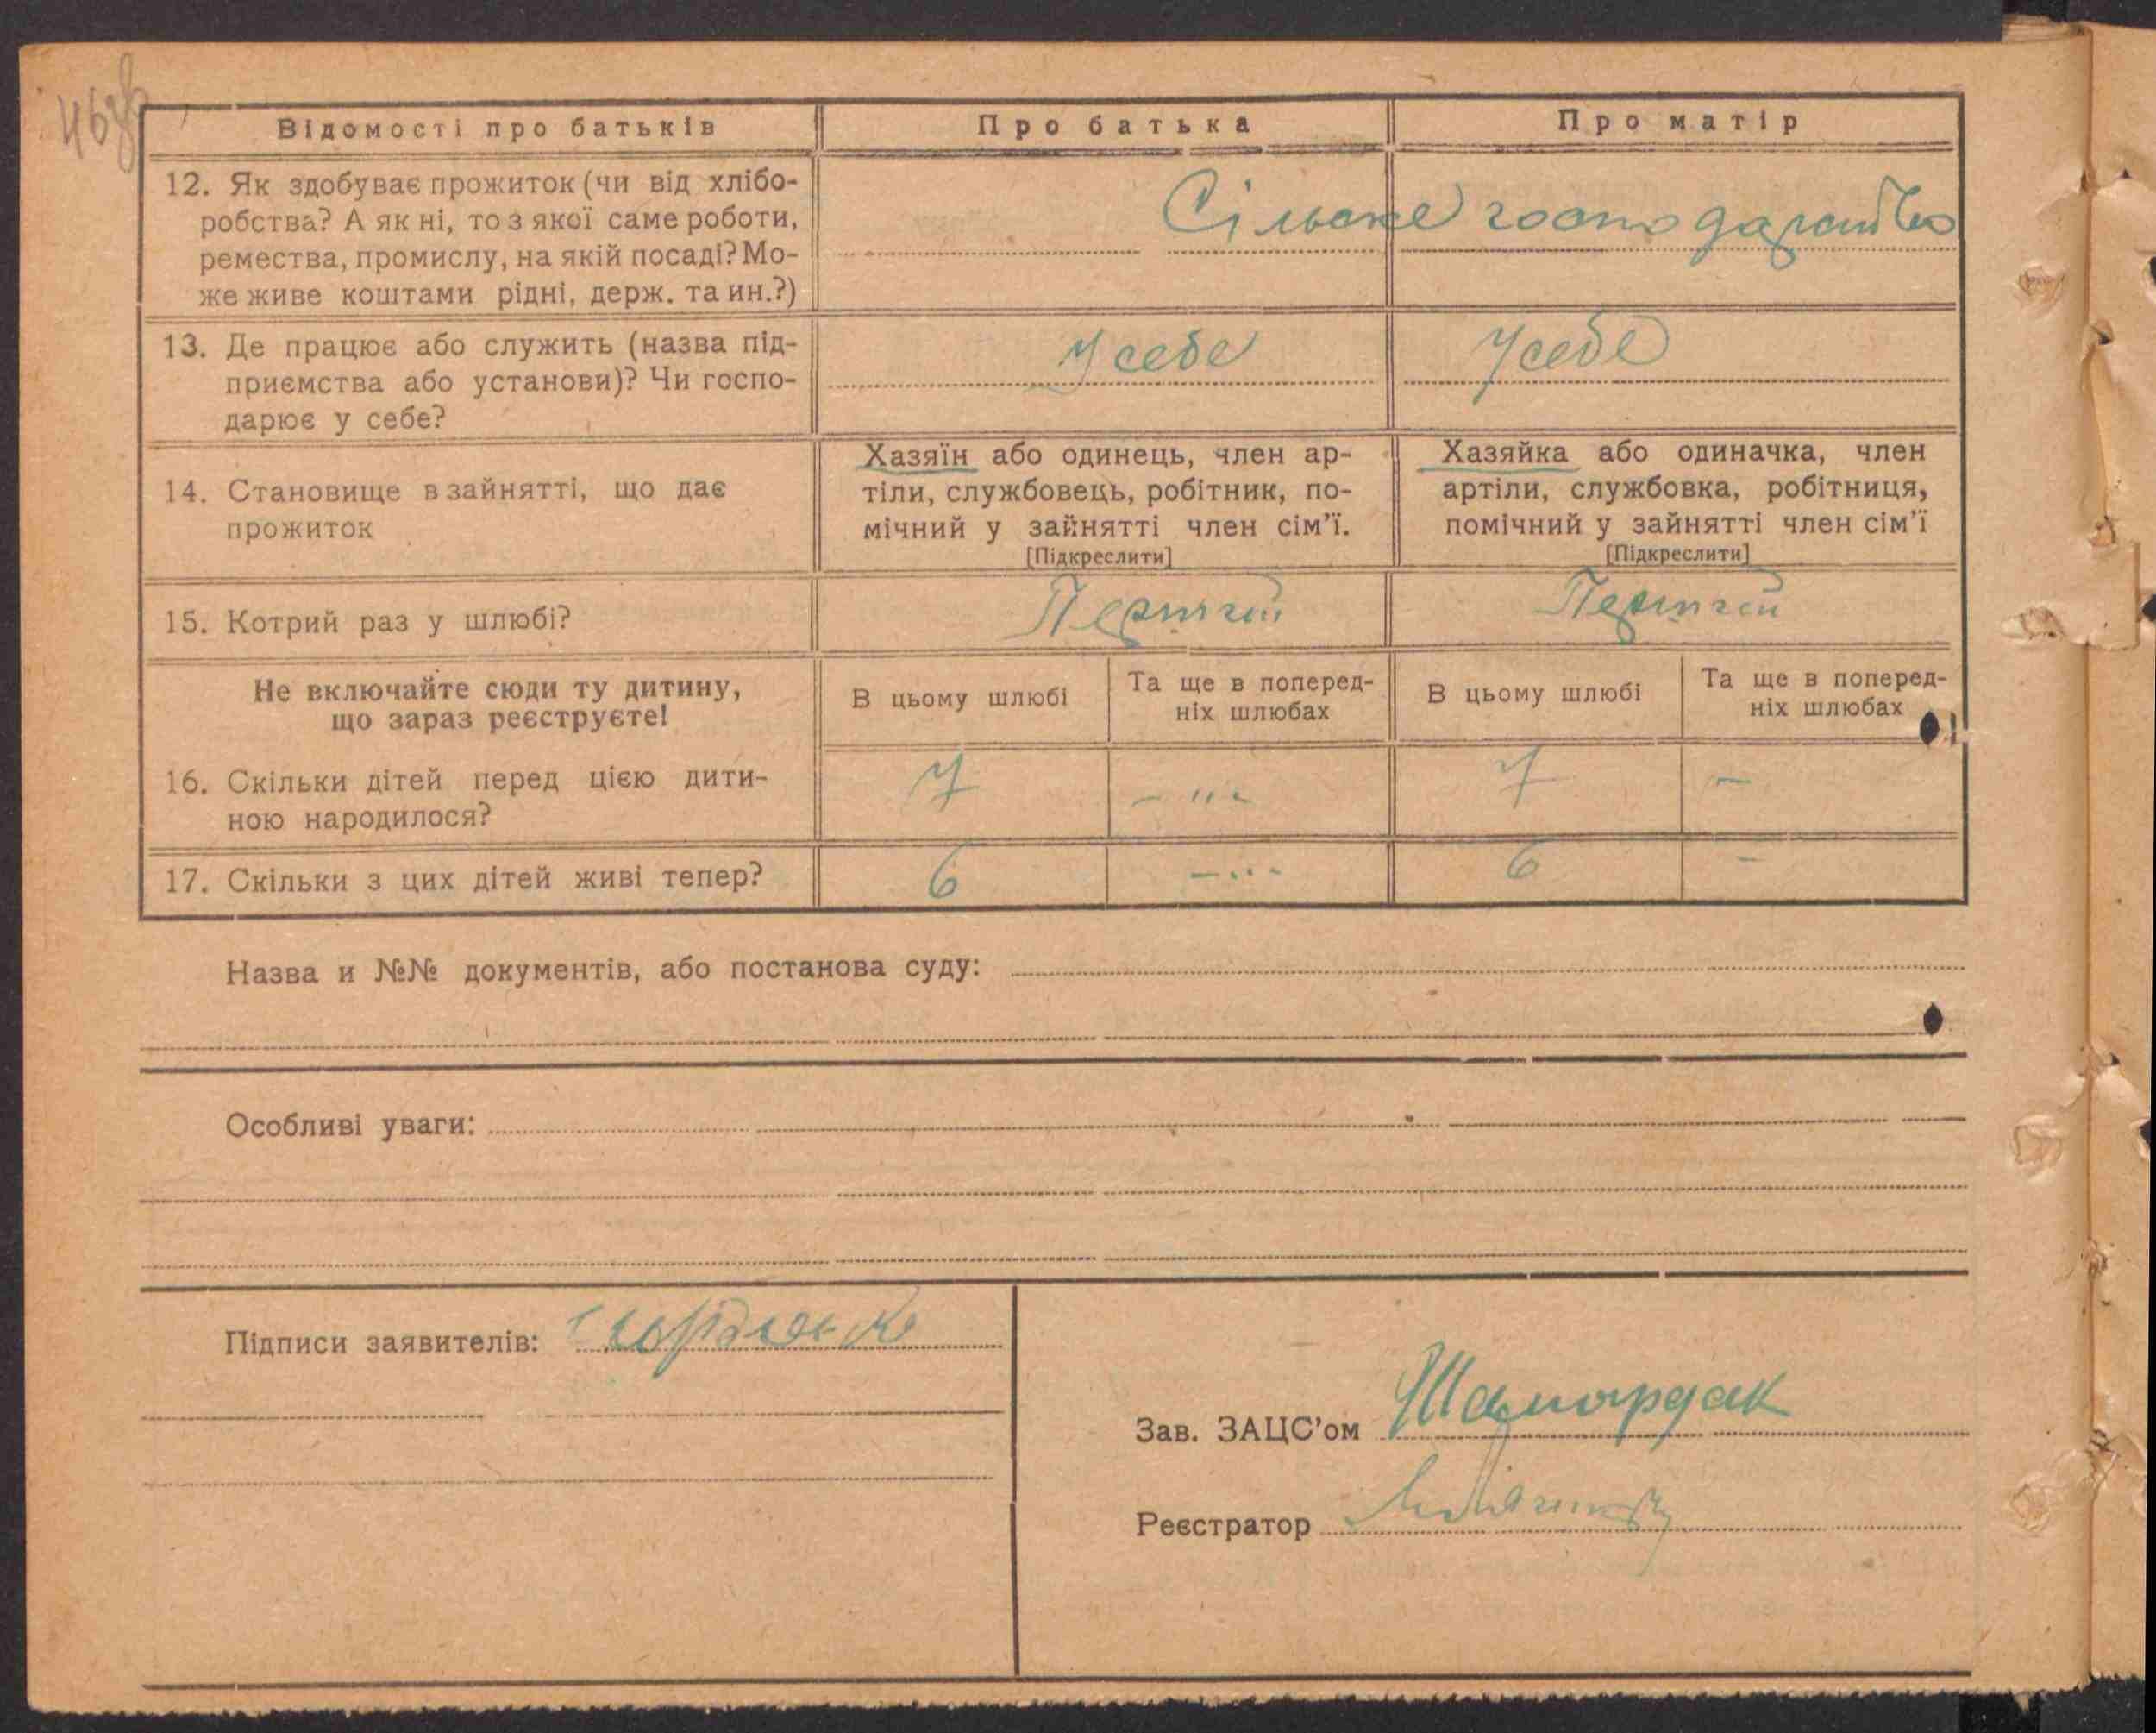 46зв
Відомості про батьків
Про батька
Про матір
12. Як здобуває прожиток (чи від хлібо-
робства? А як ні, то з якої саме роботи,
ремества, промислу, на якій посаді? Мо-
же живе коштами рідні, держ. та ин.?)
Сільське господарство
13. Де працює або служить (назва під-
приємства або установи)? Чи госпо-
дарює у себе?
У себе
У себе
14. Становище в зайнятті, що дає
прожиток
Хазяїн або одинець, член ар-
тіли, службовець, робітник, по-
мічний у зайнятті член сім'ї.
[Підкреслити]
Хазяйка або одиначка, член
артіли, службовка, робітниця,
помічний у зайнятті член сім'ї
[Підкреслити]
15. Котрий раз у шлюбі?
Не включайте сюди ту дитину,
що зараз реєструєте!
В цьому шлюбі
Та ще в поперед-
ніх шлюбах
В цьому шлюбі
Та ще в поперед-
ніх шлюбах
16. Скільки дітей перед цією дити-
ною народилося?
7
- " -
7
-
17. Скільки з цих дітей живі тепер?
6
- " -
6
-
Назва и №№ документів, або постанова суду:
Особливі уваги:
Підписи заявителів:
Зав. ЗАЦС'ом Шамардак
Реєстратор